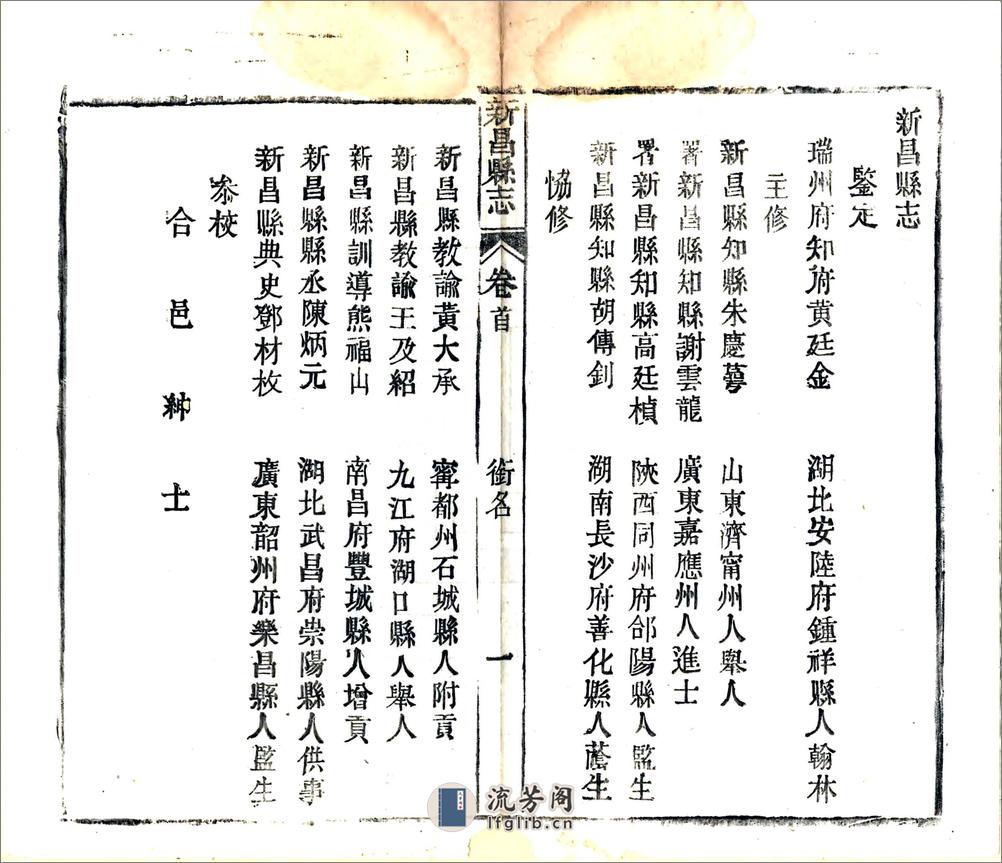 新昌縣志
鑒定
瑞州府知府黃廷金 湖北安陸府鍾祥縣人翰林
主修
新昌縣知縣朱慶萼 山東濟甯州人舉人
署新昌縣知縣謝雲龍 廣東嘉應州人進士
署新昌縣知縣高廷楨 陝西同州府郃陽縣人監生
新昌縣知縣胡傳釗 湖南長沙府善化縣人蔭生
協修
新昌縣志 卷首 銜名 一
新昌縣教諭黃大承 甯都州石城縣人附貢
新昌縣教諭王及紹 九江府湖口縣人舉人
新昌縣訓導熊福山 南昌府豐城縣人增貢
新昌縣縣丞陳炳元 湖北武昌府崇陽縣人供事
新昌縣典史鄧材枚 廣東韶州府樂昌縣人監生
叅校
合邑紳士
流芳阁
lfglib.cn